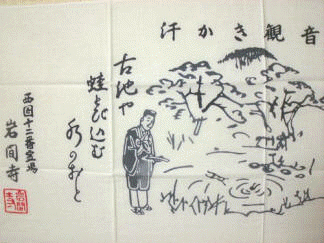 汗かき観音
古池や
蛙飛び込む
水のおと
西国十二番霊場
岩間寺